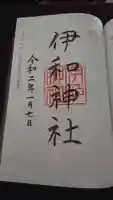 伊和神社
令和二年一月七日